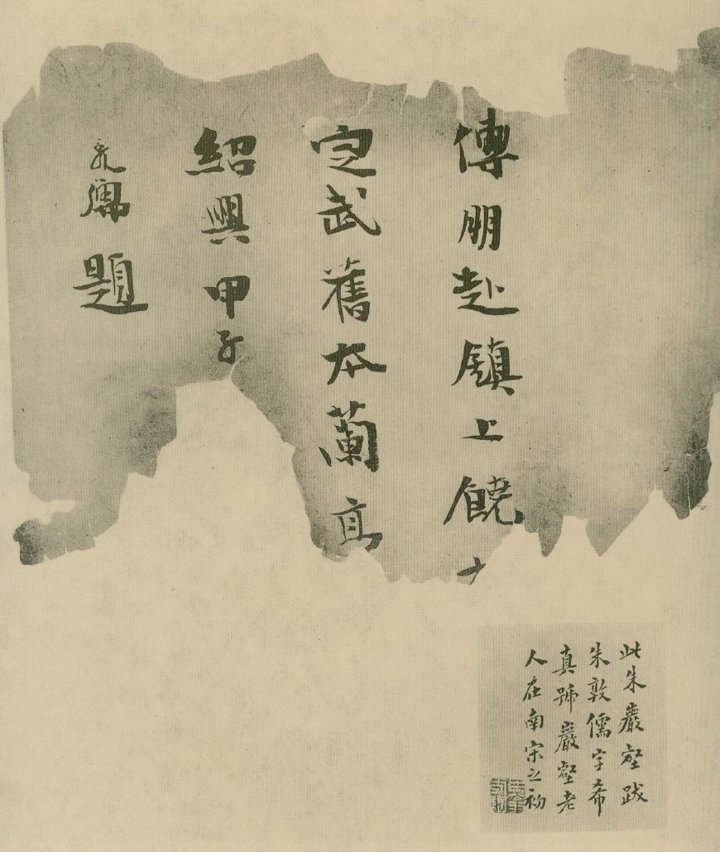 傅朋赴鎮上饒
定武舊本蘭亭
紹興甲子
儒題
此朱巖壑跋
朱敦儒字希
真號巖壑老
人在南宋之初